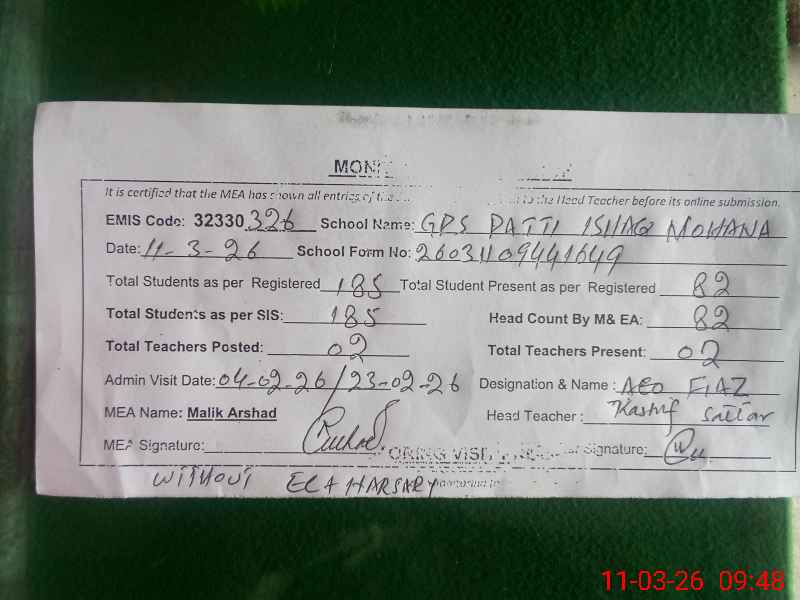 MONI
It is certified that the MEA has shown all entries of the to the Head Teacher before its online submission.
EMIS Code: 32330326 School Name: GPS PATTI ISHAQ MOHANA
Date: 11-3-26 School Form No: 26031109441649
Total Students as per Registered 185 Total Student Present as per Registered 82
Total Students as per SIS: 185 Head Count By M& EA: 82
Total Teachers Posted: 02 Total Teachers Present: 02
Admin Visit Date: 04-02-26/23-02-26 Designation & Name: AEO FIAZ
MEA Name: Malik Arshad Head Teacher: Kashif Sattar
MEA Signature: ORING VISIT Signature:
WITHOUT
11-03-26 09:48